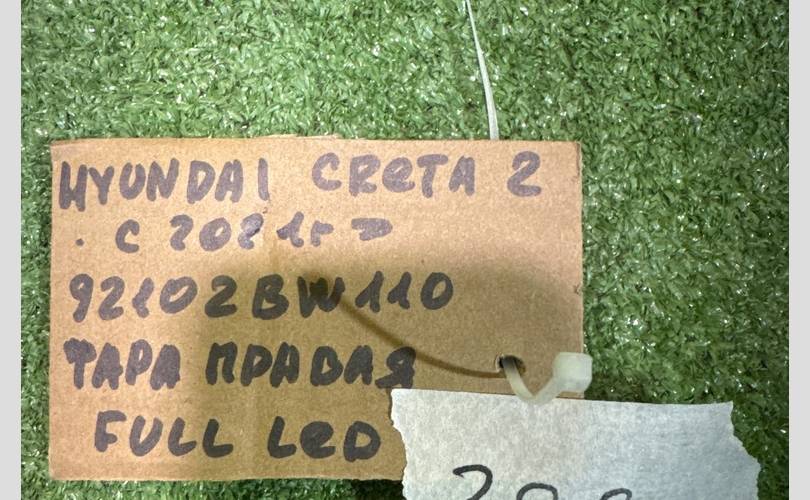 HYUNDAI CRETA 2
. С 2021г =>
92102BW110
ТАРА ПРАВАЯ
FULL LED